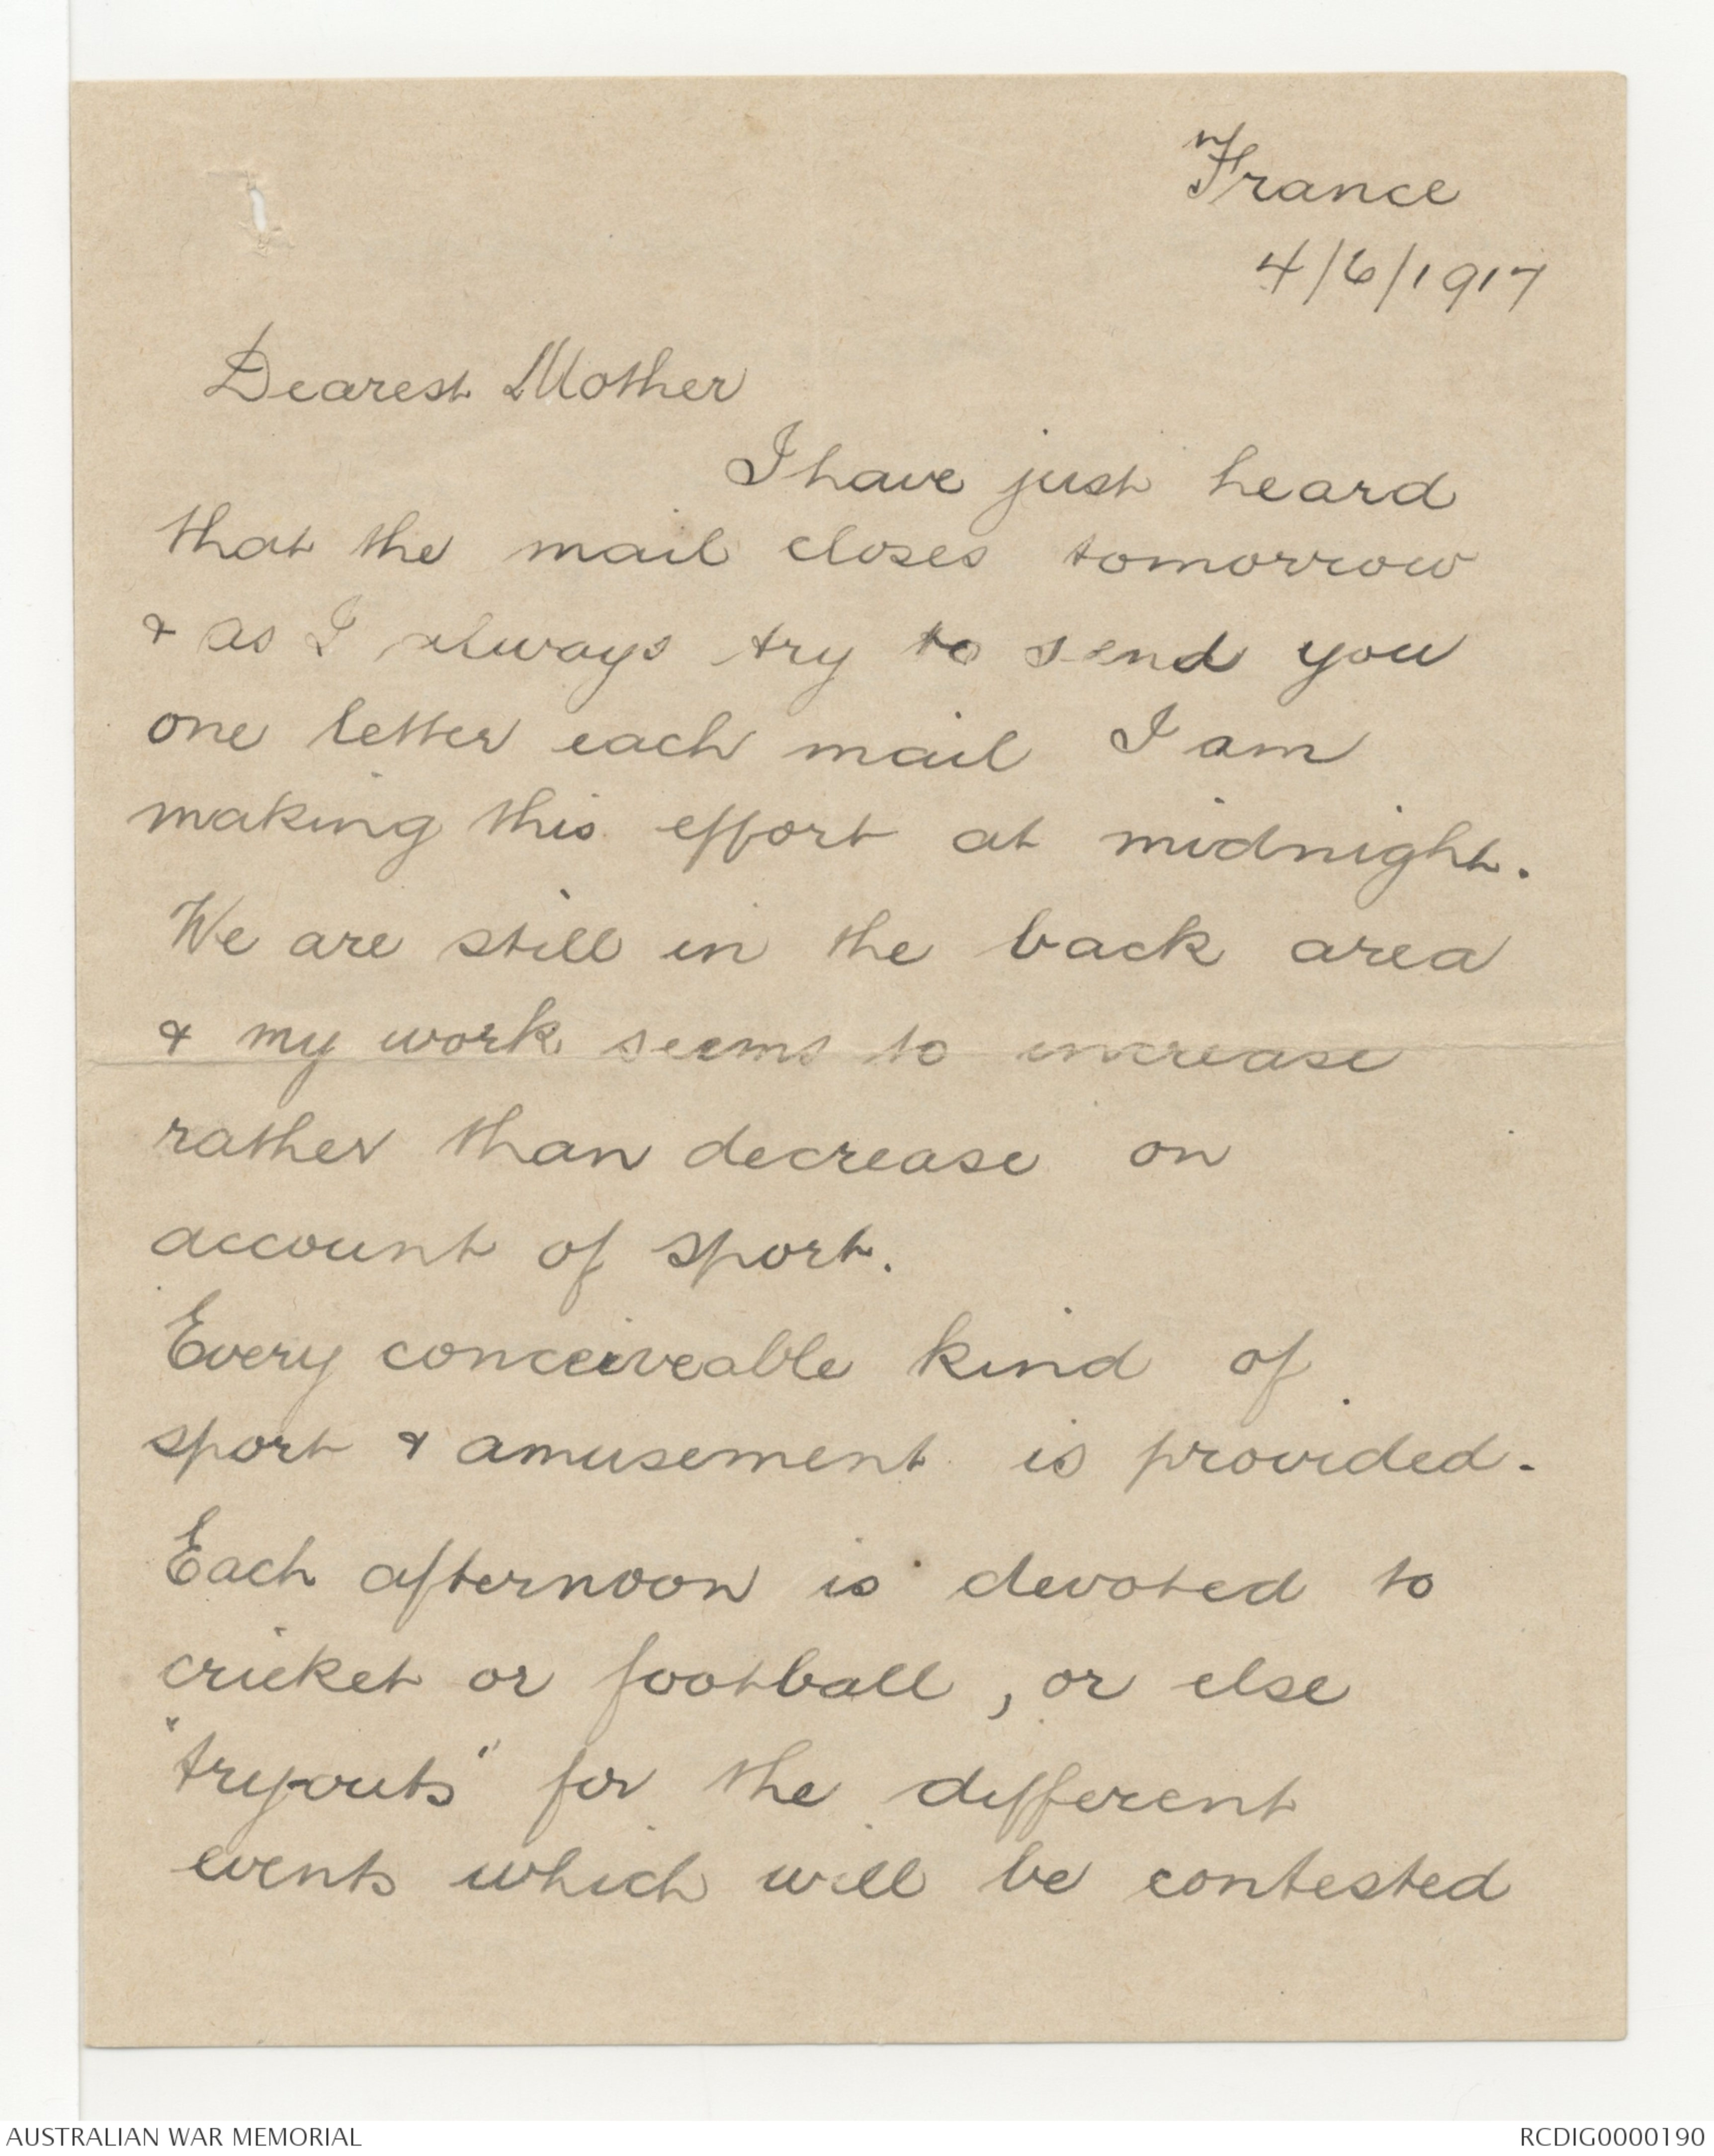 France
4/6/1917
Dearest Mother
I have just heard
that the mail closes tomorrow
& as I always try to send you
one letter each mail I am
making this effort at midnight.
We are still in the back area
& my work seems to increase
rather than decrease on
account of sport.
Every conceiveable kind of
sport & amusement is provided.
Each afternoon is devoted to
cricket or football, or else
"try-outs" for the different
events which will be contested
AUSTRALIAN WAR MEMORIAL
RCDIG0000190